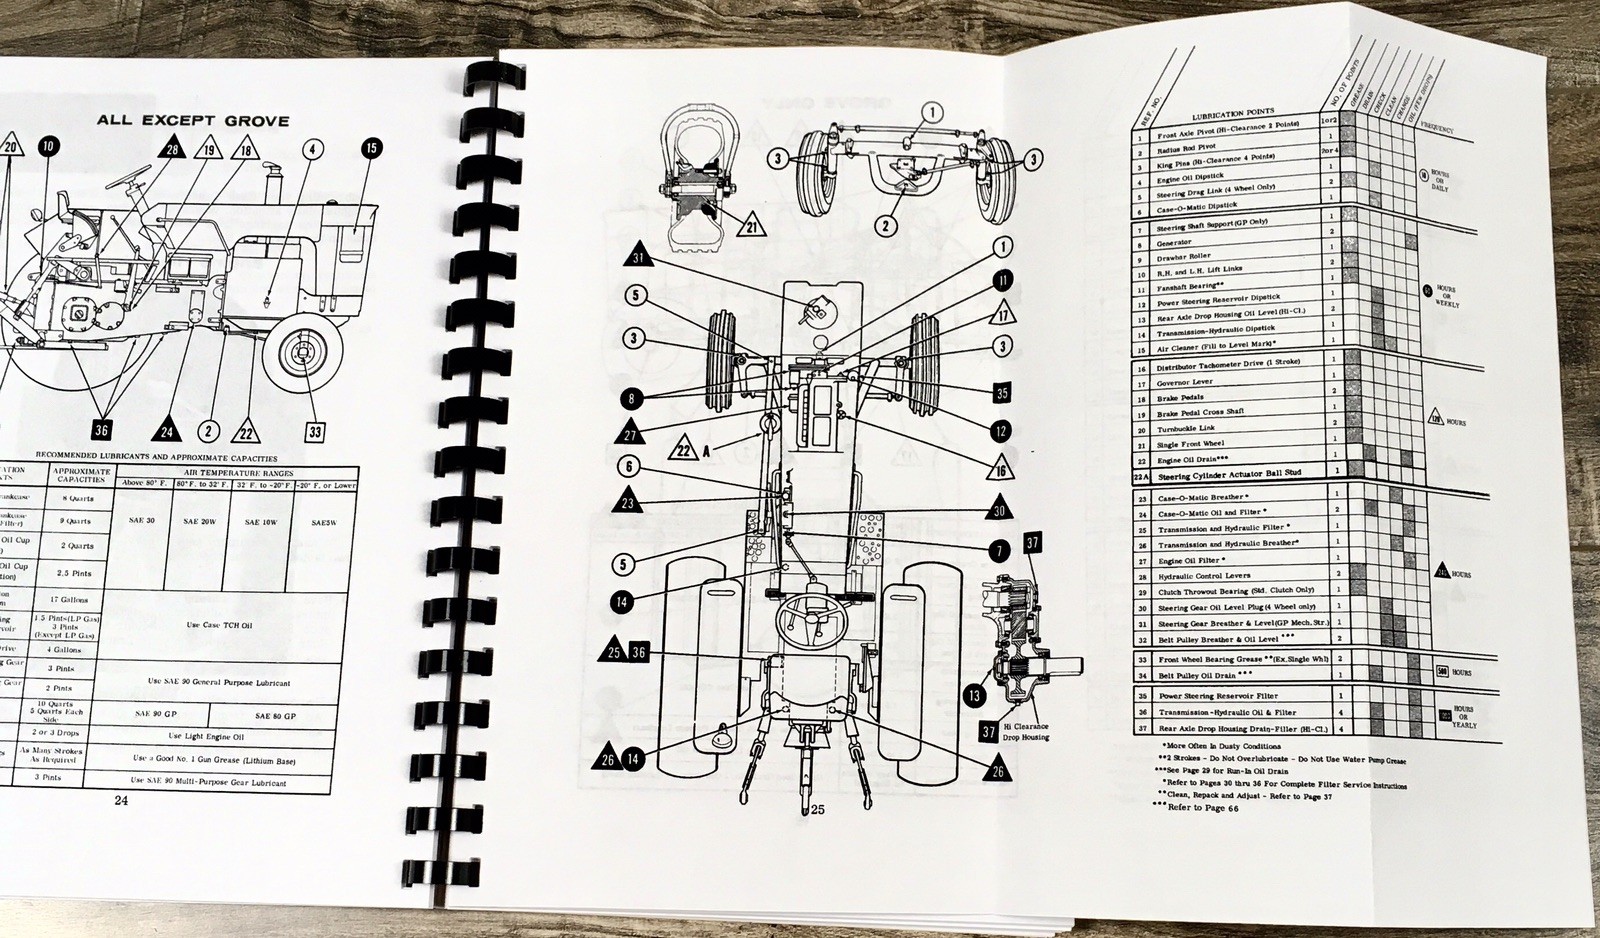 ALL EXCEPT GROVE
20
10
28
19
18
4
15
36
24
2
22
33
RECOMMENDED LUBRICANTS AND APPROXIMATE CAPACITIES
APPROXIMATE CAPACITIES
AIR TEMPERATURE RANGES
Above 80° F.
80° F. to 32° F.
32° F. to -20° F.
-20° F. or Lower
8 Quarts
9 Quarts
SAE 30
SAE 20W
SAE 10W
SAE5W
Oil Cup
2 Quarts
Oil Cup
2.5 Pints
17 Gallons
Use Case TCH Oil
1.5 Pints(LP Gas)
3 Pints
(Except LP Gas)
4 Gallons
Gear
3 Pints
Use SAE 90 General Purpose Lubricant
Gear
2 Pints
10 Quarts
5 Quarts Each
Side
SAE 90 GP
SAE 80 GP
2 or 3 Drops
Use Light Engine Oil
As Many Strokes
As Required
Use a Good No. 1 Gun Grease (Lithium Base)
3 Pints
Use SAE 90 Multi-Purpose Gear Lubricant
24
1
3
3
2
21
31
1
5
11
17
3
3
8
35
27
12
22 A
6
16
23
30
5
7
37
14
25
36
13
37
Hi Clearance
Drop Housing
26
14
26
25
REF. NO.
LUBRICATION POINTS
NO. OF POINTS
GREASE
DRAIN
CHECK
CLEAN
CHANGE
OIL (FEW DROPS)
FREQUENCY
1 Front Axle Pivot (Hi-Clearance 2 Points) 1or2
2 Radius Rod Pivot 1
3 King Pins (Hi-Clearance 4 Points) 2or4
4 Engine Oil Dipstick 1
5 Steering Drag Link (4 Wheel Only) 2
6 Case-O-Matic Dipstick 1
10 HOURS OR DAILY
7 Steering Shaft Support(GP Only) 1
8 Generator 2
9 Drawbar Roller 1
10 R.H. and L.H. Lift Links 2
11 Fanshaft Bearing** 1
12 Power Steering Reservoir Dipstick 1
13 Rear Axle Drop Housing Oil Level(Hi-Cl.) 2
14 Transmission-Hydraulic Dipstick 1
15 Air Cleaner (Fill to Level Mark)* 1
HOURS OR WEEKLY
16 Distributor Tachometer Drive (1 Stroke) 1
17 Governor Lever 1
18 Brake Pedals 2
19 Brake Pedal Cross Shaft 1
20 Turnbuckle Link 2
21 Single Front Wheel 1
22 Engine Oil Drain*** 1
22A Steering Cylinder Actuator Ball Stud 1
HOURS
23 Case-O-Matic Breather* 1
24 Case-O-Matic Oil and Filter * 2
25 Transmission and Hydraulic Filter * 1
26 Transmission and Hydraulic Breather* 2
27 Engine Oil Filter * 1
28 Hydraulic Control Levers 2
29 Clutch Throwout Bearing (Std. Clutch Only) 1
30 Steering Gear Oil Level Plug(4 Wheel only) 1
31 Steering Gear Breather & Level(GP Mech. Str.) 1
32 Belt Pulley Breather & Oil Level *** 2
HOURS
33 Front Wheel Bearing Grease **(Ex.Single Whl) 2
34 Belt Pulley Oil Drain *** 1
500 HOURS
35 Power Steering Reservoir Filter 1
36 Transmission-Hydraulic Oil & Filter 4
37 Rear Axle Drop Housing Drain-Filler (Hi-Cl.) 4
HOURS OR YEARLY
*More Often In Dusty Conditions
**2 Strokes - Do Not Overlubricate - Do Not Use Water Pump Grease
***See Page 29 for Run-In Oil Drain
*Refer to Pages 30 thru 36 For Complete Filter Service Instructions
**Clean, Repack and Adjust - Refer to Page 37
***Refer to Page 66